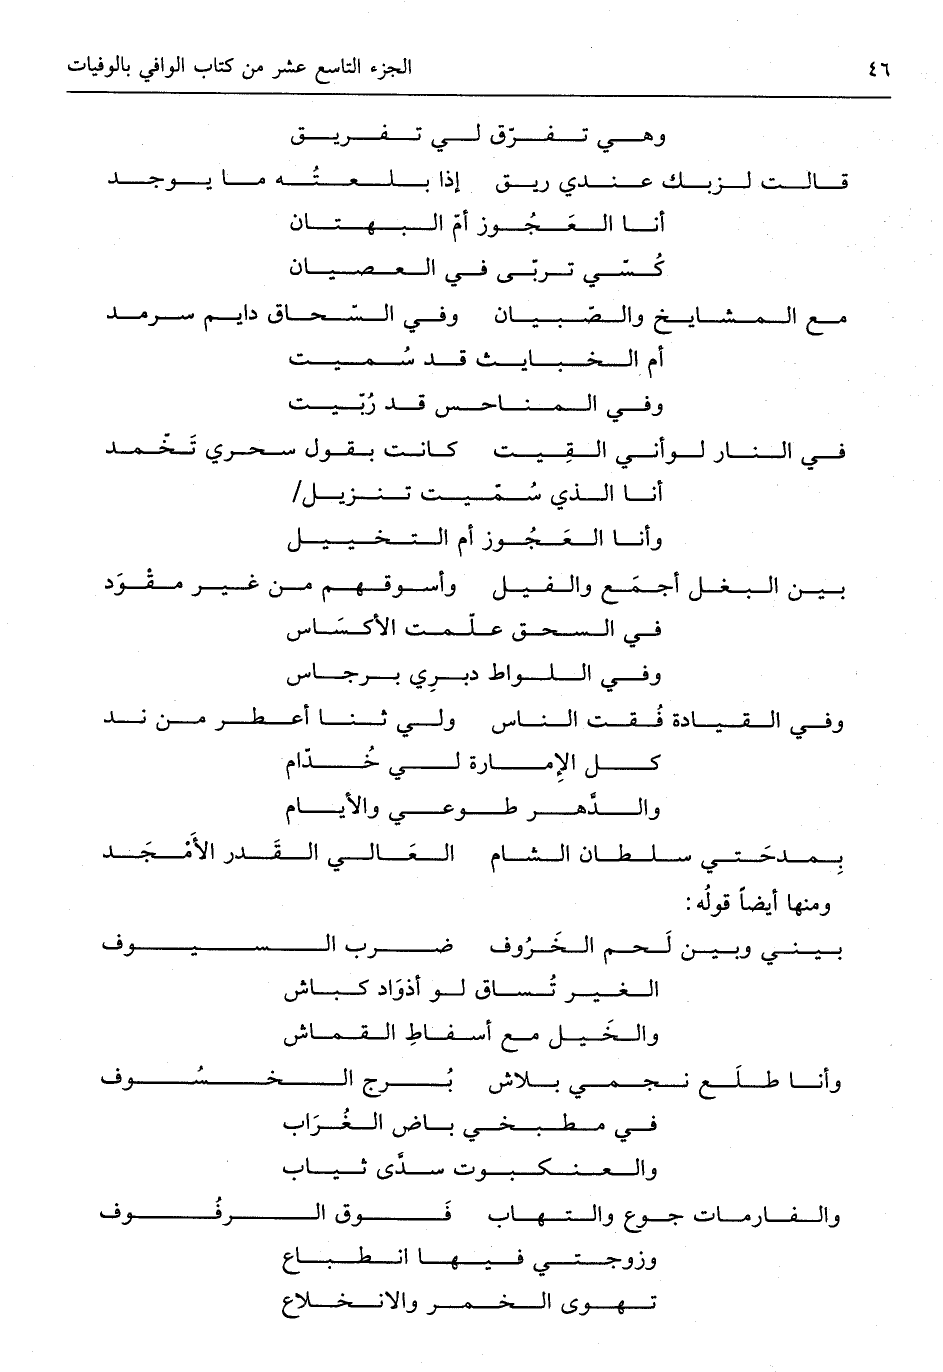 ٤٦ الجزء التاسع عشر من كتاب الوافي بالوفيات
وهي تفرّق لي تفريق
قالت لزبك عندي ريق إذا بلعتُه ما يوجد
أنا العَجُوز أمّ البهتان
كُسّي تربّى في العصيان
مع المشايخ والصّبيان وفي السّحاق دايم سرمد
أم الخبايث قد سُميت
وفي المناحس قد رُبّيت
في النار لوأني القِيت كانت بقول سحري تَخْمد
أنا الذي سُمّيت تنزيل/
وأنا العَجُوز أم التخييل
بين البغل أجمَع والفيل وأسوقهم من غير مقْوَد
في السحق علّمت الأكسَاس
وفي اللواط دبرِي برجاس
وفي القيادة فُقت الناس ولي ثنا أعطر من ند
كل الإمارة لي خُدّام
والدَّهر طوعي والأيام
بِمدحَتي سلطان الشام العَالي القَدر الأَمْجَد
ومنها أيضاً قولُه:
بيني وبين لَحم الخَرُوف ضرب السيوف
الغير تُساق لو أذوَاد كباش
والخَيل مع أسفاطِ القماش
وأنا طلَع نجمي بلاش بُرج الخسُوف
في مطبخي باض الغُرَاب
والعنكبوت سدَّى ثياب
والفارمات جوع والتهاب فَوق الرفُوف
وزوجتي فيها انطباع
تهوى الخمر والانخلاع